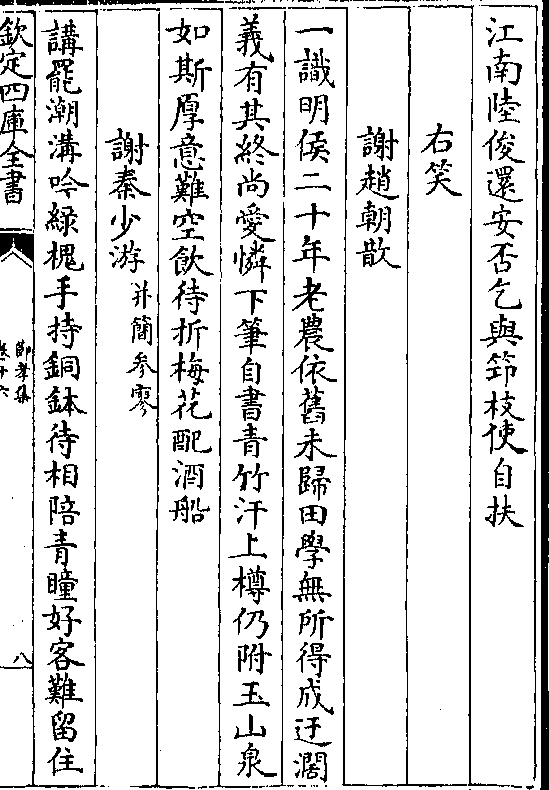 江南陸俊還安否乞與筇枝使自扶
右笑
謝趙朝散
一識明侯二十年老農依舊未歸田學無所得成迂濶
義有其終尚愛憐下筆自書青竹汗上樽仍附玉山泉
如斯厚意難空飲待折梅花配酒船
謝秦少游并簡參寥
講罷潮溝吟緑槐手持銅鉢待相陪青瞳好客難留住
欽定四庫全書
節孝集
卷十六
八